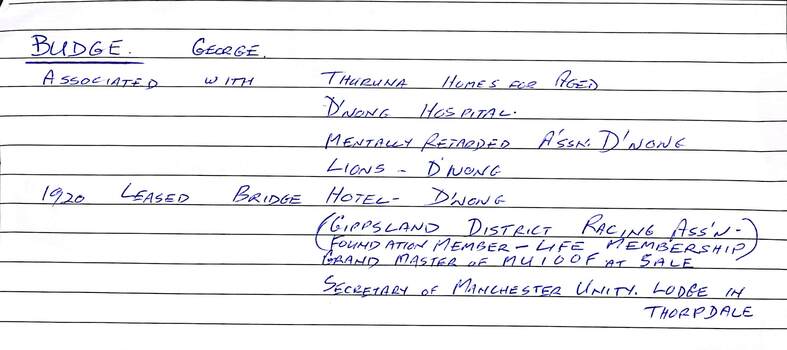 BUDGE. GEORGE.
ASSOCIATED WITH THURUNA HOMES FOR AGED
D'NONG HOSPITAL.
MENTALLY RETARDED A'SSN. D'NONG
LIONS - D'NONG
1920 LEASED BRIDGE HOTEL - D'NONG
(GIPPSLAND DISTRICT RACING ASS'N -
FOUNDATION MEMBER - LIFE MEMBERSHIP)
GRAND MASTER OF MUIOOF AT SALE
SECRETARY OF MANCHESTER UNITY. LODGE IN
THORPDALE